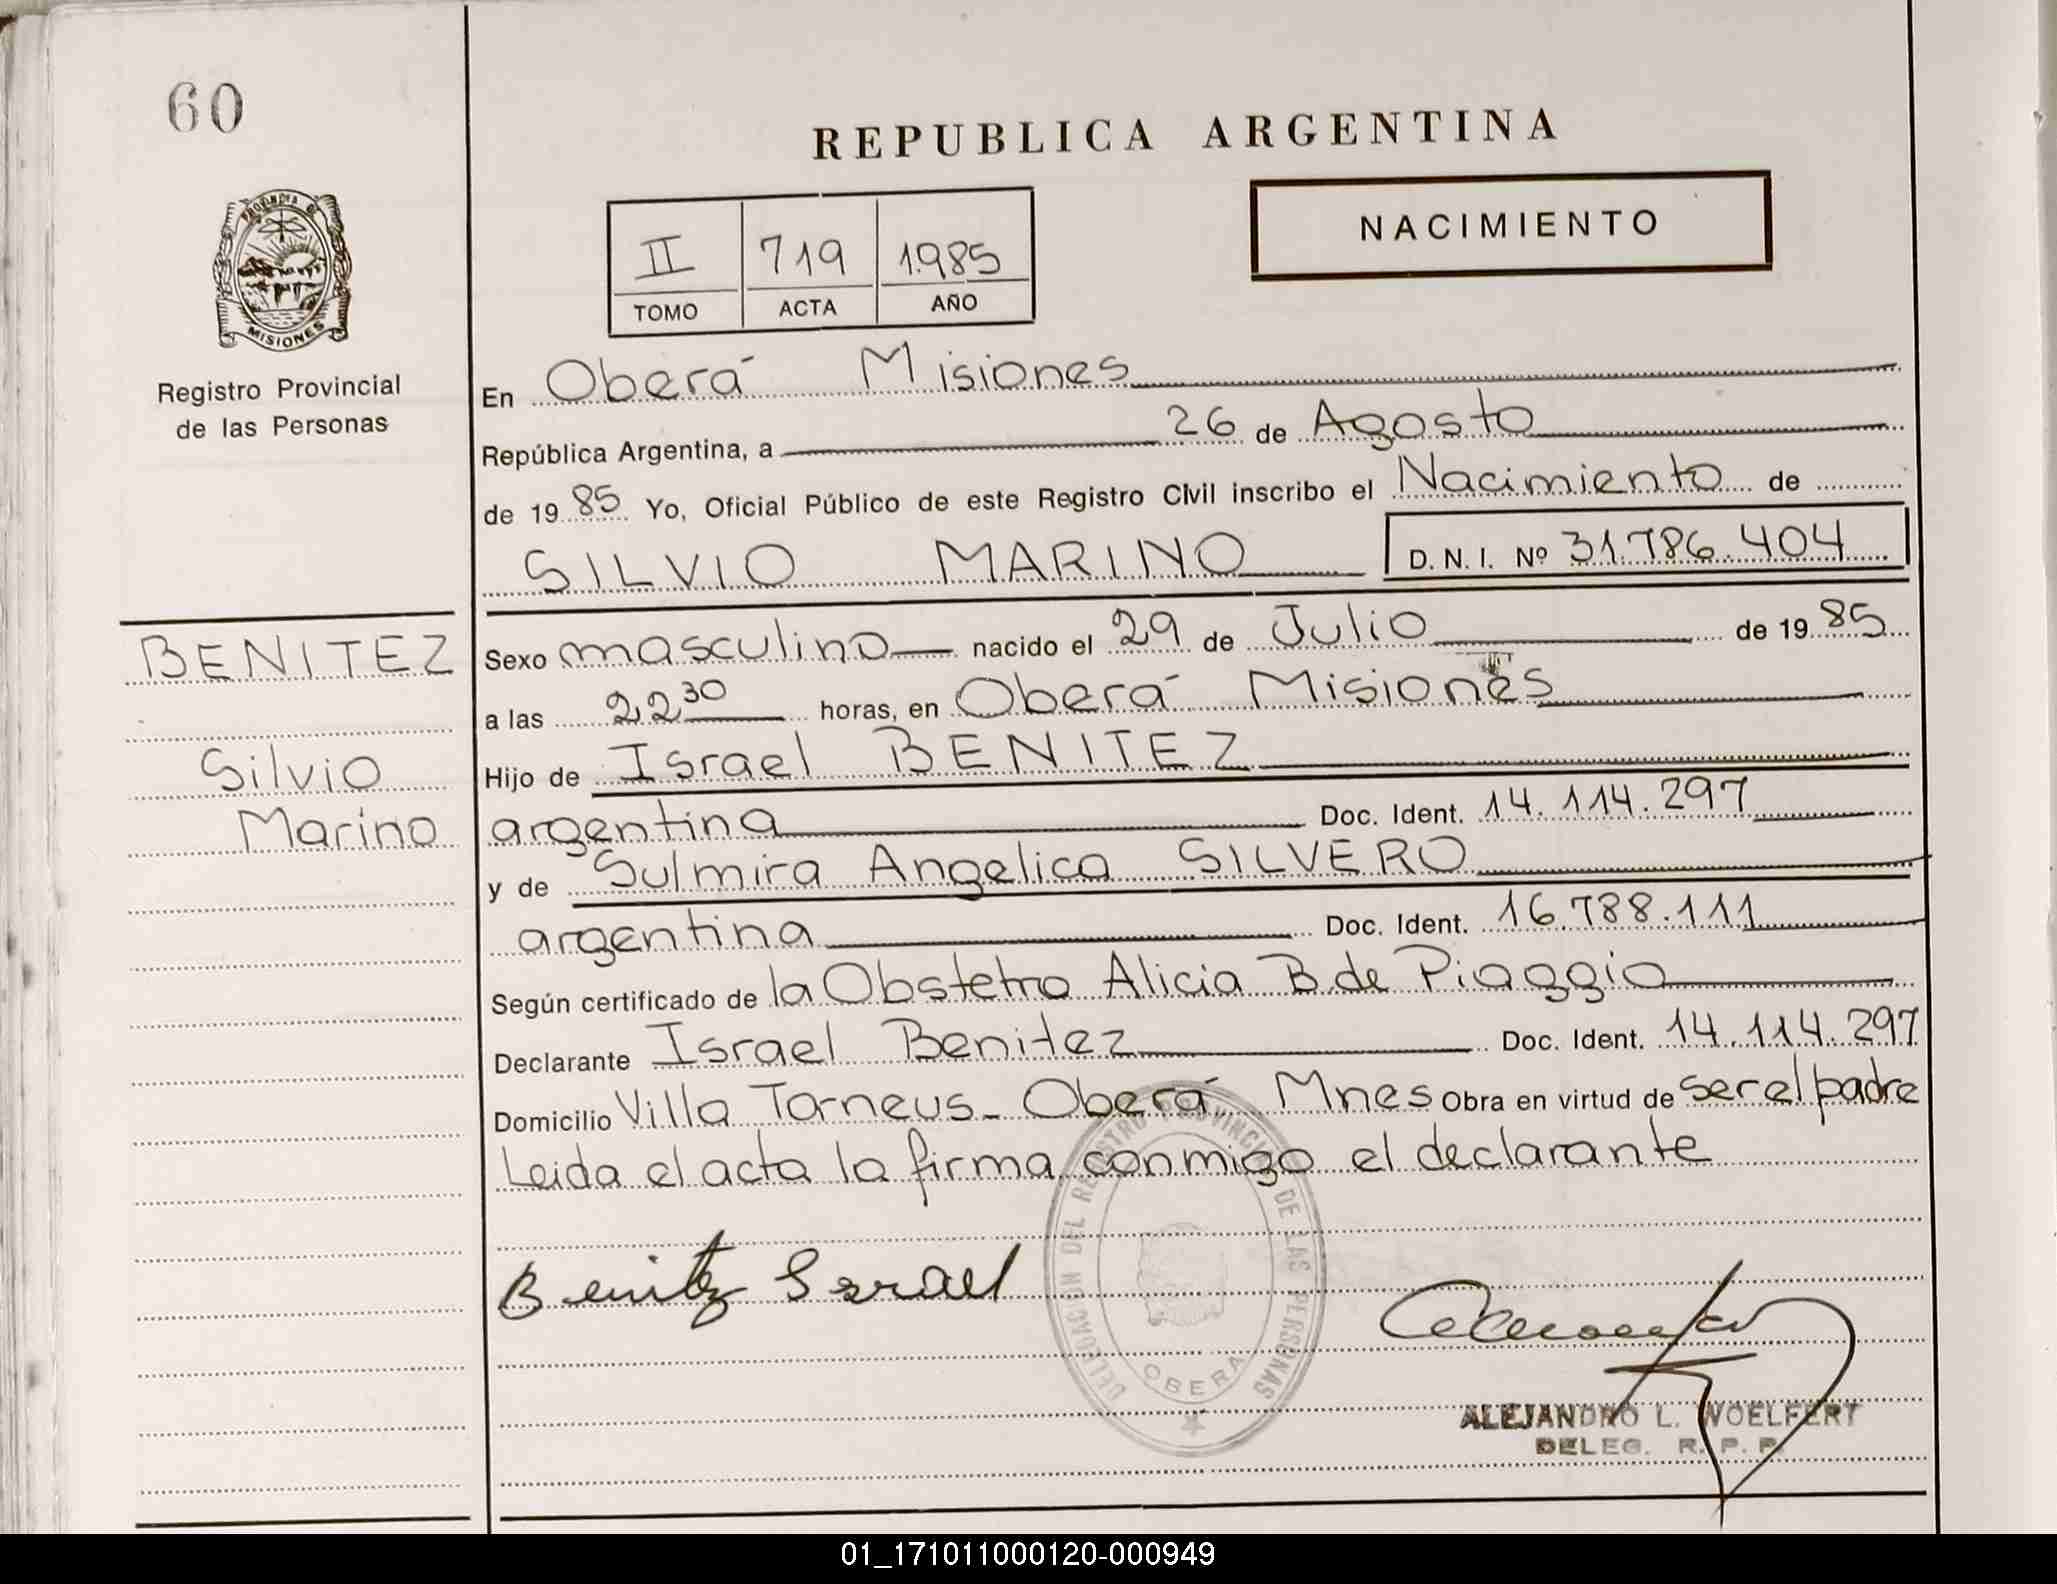 60
REPUBLICA ARGENTINA
NACIMIENTO
II 719 1985
TOMO ACTA AÑO
PROVINCIA DE
MISIONES
Registro Provincial
de las Personas
En Oberá Misiones
República Argentina, a 26 de Agosto
de 19 85 Yo, Oficial Público de este Registro Civil inscribo el Nacimiento de
SILVIO MARINO D. N. I. Nº 31.786.404
BENITEZ
Silvio
Marino
Sexo masculino nacido el 29 de Julio de 19 85
a las 22 30 horas, en Oberá Misiones
Hijo de Israel BENITEZ
argentina Doc. Ident. 14.114.297
y de Sulmira Angelica SILVERO
argentina Doc. Ident. 16.788.111
Según certificado de la Obstetra Alicia B. de Piaggio
Declarante Israel Benitez Doc. Ident. 14.114.297
Domicilio Villa Torneus - Oberá Mnes Obra en virtud de ser el padre
Leida el acta la firma conmigo el declarante
Benitez Israel
DELEGACION DEL REGISTRO PROVINCIAL DE LAS PERSONAS
OBERA
ALEJANDRO L. WOELFERT
DELEG. R. P. P.
01_171011000120-000949